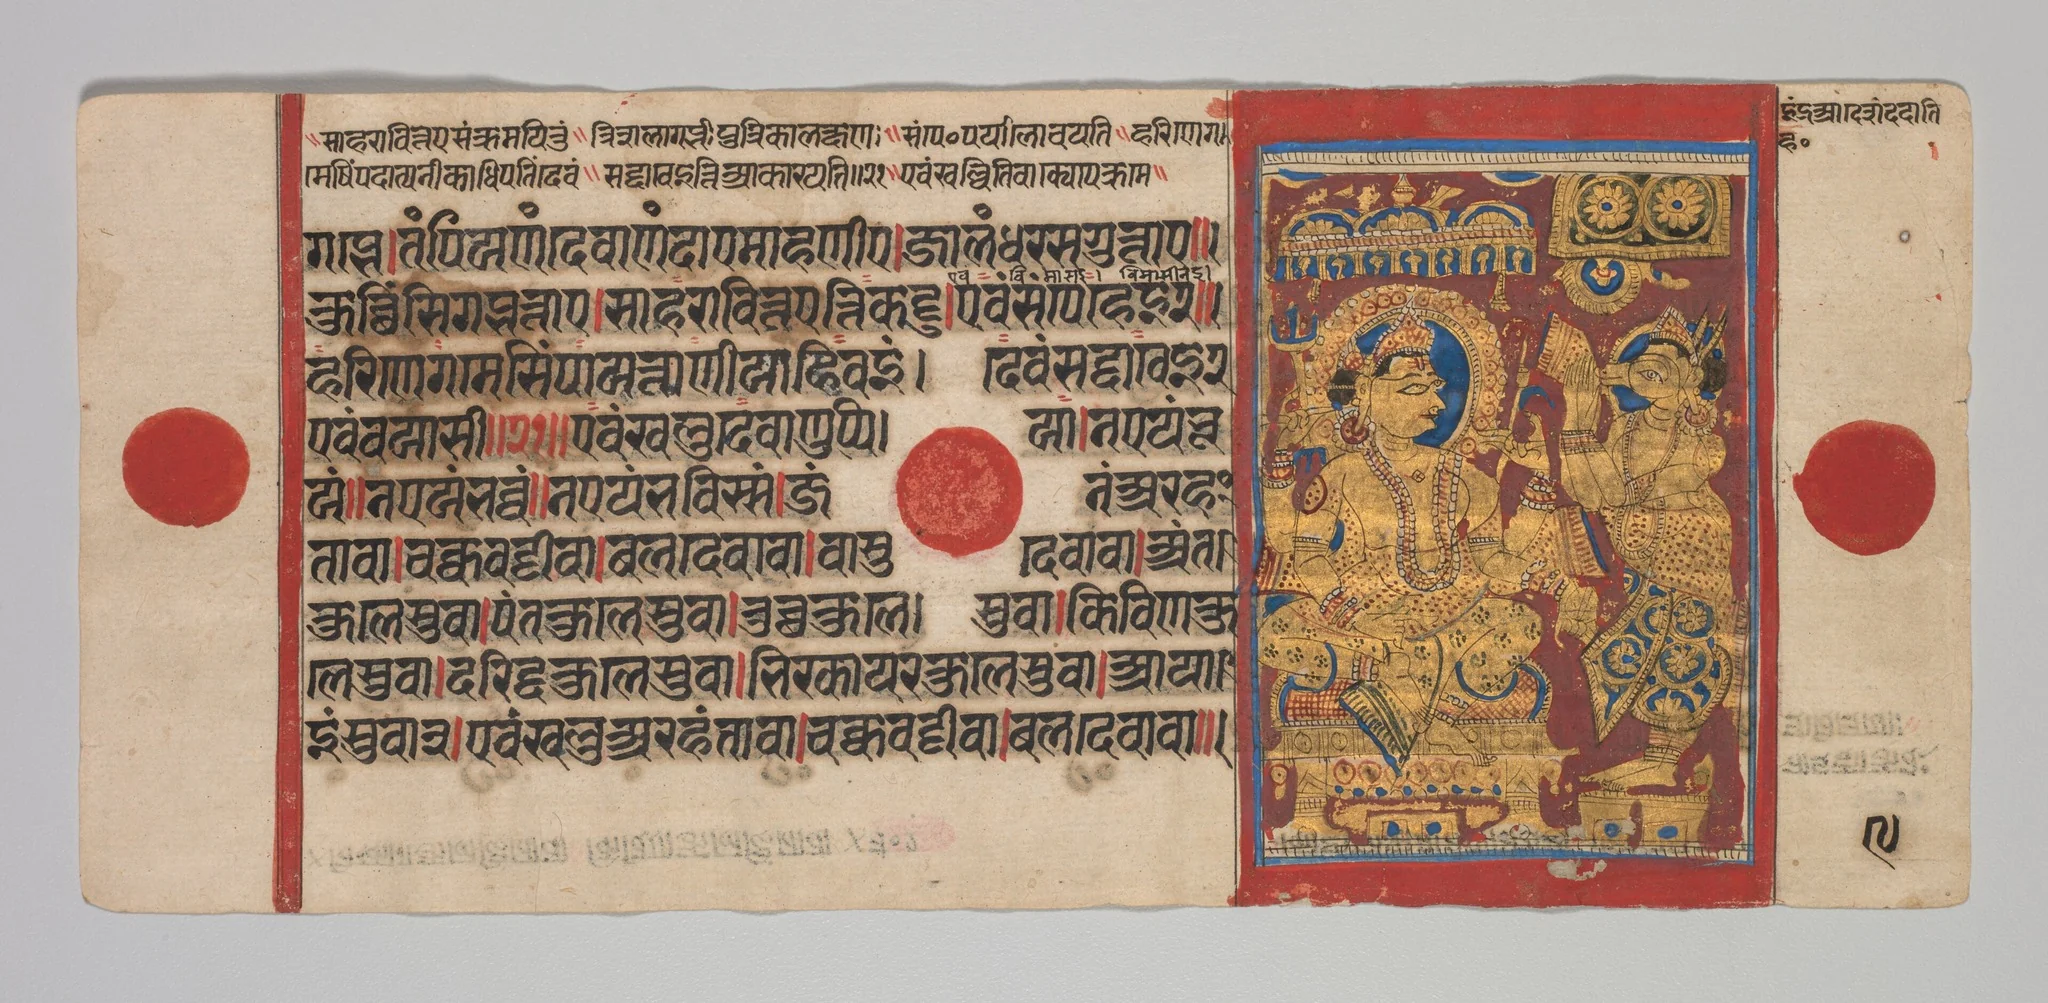 ॥साहरावित्तए संक्रमयितुं॥ त्रिशलागर्भः पुत्रिकालक्षणः॥ संपे० पर्यालोचयति॥ हरिणेग
मेषिं पदात्यनीकाधिपतिं देवं॥ सद्दावेइत्ति आकारयति॥२१॥ एवं खल्वितिवाक्योपक्रमे॥
गब्भे।तं पि य णं देवाणंदाए माहणीए।जालंधरसगुत्ताए॥
कुच्छिंसि गब्भत्ताए।साहरावित्तए त्ति कट्टु।एवं संपेहेइ २॥
हरिणेगमेसिं पायत्ताणीयाहिवइं। देवं सद्दावेइ २
एवं वयासी॥२१॥एवं खलु देवाणुप्पिया।न एयं भू
यं॥न एयं भव्वं॥न एयं भविस्सं।जं नं अरहं
ता वा।चक्कवट्टी वा।बलदेवा वा।वासुदेवा वा।अंत
कुलेसु वा।पंतकुलेसु वा।तुच्छकुलेसु वा।किविणकु
लेसु वा।दरिद्दकुलेसु वा।भिरकायरकुलेसु वा।आया
इंसु वा ३।एवं खलु अरहंता वा।चक्कवट्टी वा।बलदेवा वा॥
इंद्र आदेशं ददाति
ह०